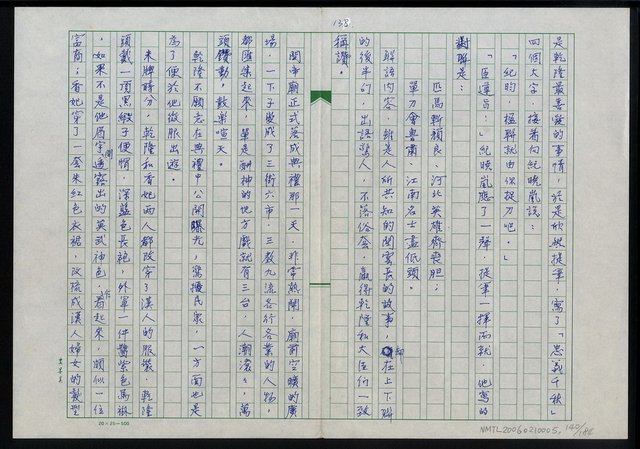 138.
是乾隆最喜愛的事情,於是欣然提筆,寫了「忠義千秋」
四個大字,接著向紀曉嵐說:
「紀昀,楹聯就由你捉刀吧。」
「臣遵旨。」紀曉嵐應了一聲,提筆一揮而就,他寫的
對聯是:
匹馬斬顏良,河北英雄齊喪胆;
單刀會魯肅,江南名士盡低頭。
聯語內容,雖是人所共知的關雲長的故事,却在上下聯
的後半幻,出語驚人,不落俗套,贏得乾隆和大臣們一致
稱讚。
關帝廟正式落成典禮那一天,非常熱鬧,廟前空曠的廣
場,一下子變成了三街六市,三教九流各行各業的人物,
都匯集起來,單是酬神的地方戲就有三台,人潮滾滾,萬
頭鑽動,鼓樂喧天。
乾隆不願意在典禮中公開曝光,驚擾民衆,一方面也是
為了便於他微服出遊。
未牌時分,乾隆和香妃兩人都改穿了漢人的服裝,乾隆
頭戴一頂黑緞子便帽,深藍色長袍,外罩一件醬紫色馬褂
,如果不是他眉宇間透露出的英武神色,看起來頗似一位
富商;香妃穿了一套朱紅色衣裙,改梳成漢人婦女的髮型
20×25=500
NMTL20060210005, 140/182